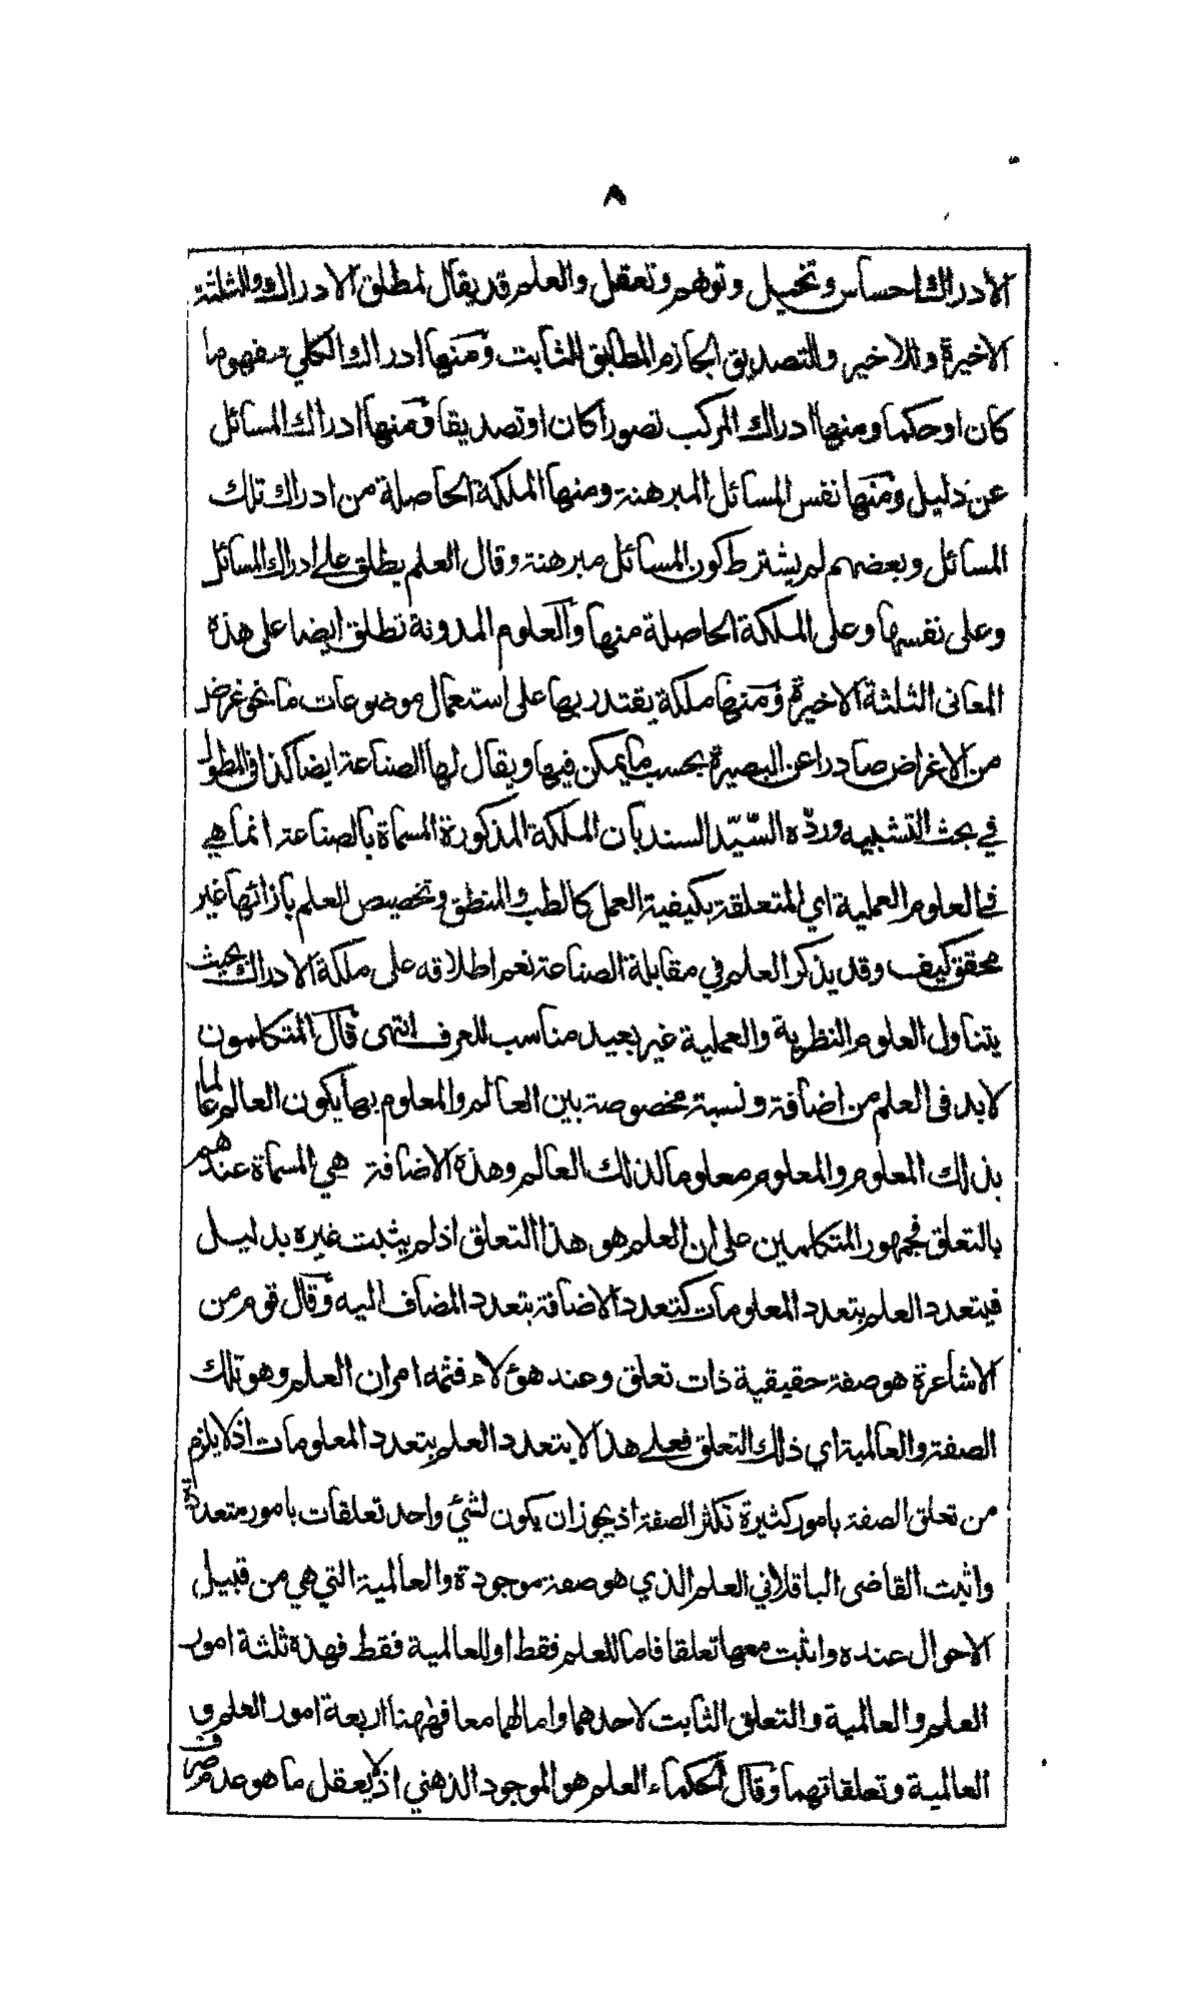 ٨
الادراك احساس وتخيل وتوهم وتعقل والعلم قد يقال لمطلق الادراك وللثلثة
الاخيرة وللاخير وللتصديق الجازم المطابق الثابت ومنها ادراك الكلي مفهوما
كان او حكما ومنها ادراك المركب تصورا كان او تصديقا ومنها ادراك المسائل
عن دليل ومنها نفس المسائل المبرهنة ومنها الملكة الحاصلة من ادراك تلك
المسائل وبعضهم لم يشترط كون المسائل مبرهنة وقال العلم يطلق على ادراك المسائل
وعلى نفسها وعلى الملكة الحاصلة منها والعلوم المدونة تطلق ايضا على هذه
المعانى الثلثة الاخيرة ومنها ملكة يقتدر بها على استعمال موضوعات ما نحو غرض
من الاغراض صادرا عن البصيرة بحسب ما يمكن فيها ويقال لها الصناعة ايضا كذا فى المطول
في بحث التشبيه وردّه السّيّد السند بان الملكة المذكورة المسماة بالصناعة انما هي
فى العلوم العملية اي المتعلقة بكيفية العمل كالطب والمنطق وتخصيص العلم بازائها غير
محقق كيف وقد يذكر العلم في مقابلة الصناعة نعم اطلاقه على ملكة الادراك بحيث
يتناول العلوم النظرية والعملية غير بعيد مناسب للعرف انتهى قال المتكلمون
لا بد فى العلم من اضافة ونسبة مخصوصة بين العالم والمعلوم بها يكون العالم عالما
بذلك المعلوم والمعلوم معلوما لذلك العالم وهذه الاضافة هي المسماة عندهم
بالتعلق فجمهور المتكلمين على ان العلم هو هذا التعلق اذ لم يثبت غيره بدليل
فيتعدد العلم بتعدد المعلومات كتعدد الاضافة بتعدد المضاف اليه وقال قوم من
الاشاعرة هو صفة حقيقية ذات تعلق وعند هؤلاء فثمه امران العلم وهو تلك
الصفة والعالمية اي ذلك التعلق فعلى هذا لا يتعدد العلم بتعدد المعلومات اذ لا يلزم
من تعلق الصفة بامور كثيرة تكثر الصفة اذ يجوز ان يكون لشئ واحد تعلقات بامور متعددة
واثبت القاضى الباقلاني العلم الذي هو صفة موجودة والعالمية التي هي من قبيل
الاحوال عنده واثبت معها تعلقا فاما للعلم فقط او للعالمية فقط فهذه ثلثة امور
العلم والعالمية والتعلق الثابت لاحدهما واما لهما معا فههنا اربعة امور العلم و
العالمية وتعلقاتهما وقال الحكماء العلم هو الموجود الذهني اذ لا يعقل ما هو عدم صرف